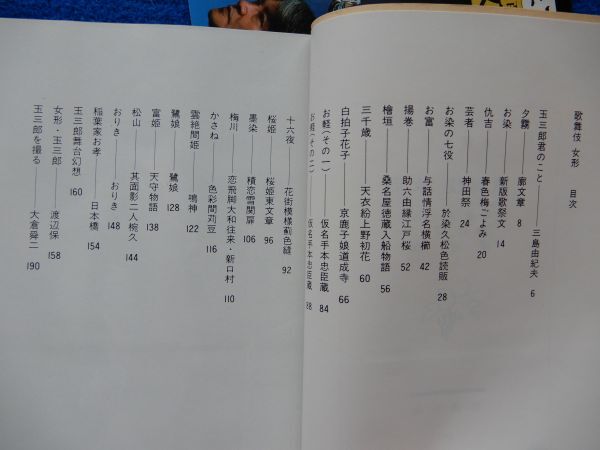 歌舞伎 女形 目次
玉三郎君のこと――三島由紀夫 6
夕霧――廓文章 8
お染――新版歌祭文 14
仇吉――春色梅ごよみ 20
芸者――神田祭 24
お染の七役――於染久松色読販 28
お富――与話情浮名横櫛 42
揚巻――助六由縁江戸桜 52
檜垣――桑名屋徳蔵入船物語 56
三千歳――天衣紛上野初花 60
白拍子花子――京鹿子娘道成寺 66
お軽(その一)――仮名手本忠臣蔵 84
お軽(その二)――仮名手本忠臣蔵 88
十六夜――花街模様薊色縫 92
桜姫――桜姫東文章 96
墨染――積恋雪関扉 106
梅川――恋飛脚大和往来・新口村 110
かさね――色彩間苅豆 116
雲絶間姫――鳴神 122
鷺娘――鷺娘 128
富姫――天守物語 138
松山――其面影二人椀久 144
おりき――おりき 148
稲葉家お孝――日本橋 154
玉三郎舞台幻想 160
女形・玉三郎――渡辺保 158
玉三郎を撮る――大倉舜二 190